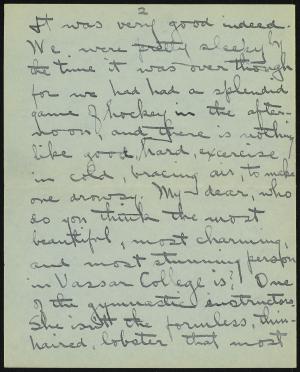 2
It was very good indeed.
We were pretty sleepy by
the time it was over though
for we had had a splendid
game of hockey in the after-
noon, and there is nothing
like good, hard, exercise
in cold, bracing air, to make
one drowsy. My dear, who
do you think the most
beautiful, most charming,
and most stunning person
in Vassar College is? One
of the gymnastic instructors.
She isn't the formless, thin-
haired, lobster that most